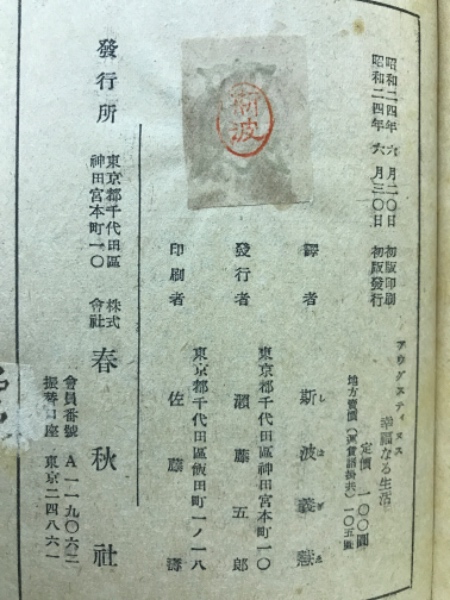 昭和二四年 六月二〇日 初版印刷
昭和二四年 六月三〇日 初版發行
アウグスティヌス
幸福なる生活
定價 一〇〇圓
地方賣價 一〇五圓
譯者 斯波義慧
東京都千代田區神田宮本町一〇
發行者 瀬藤五郎
東京都千代田區飯田町一ノ一八
印刷者 佐藤濤
斯波
發行所
東京都千代田區
神田宮本町一〇
株式
會社
春秋社
會員番號 A一一九〇六二
振替口座 東京二四八六一